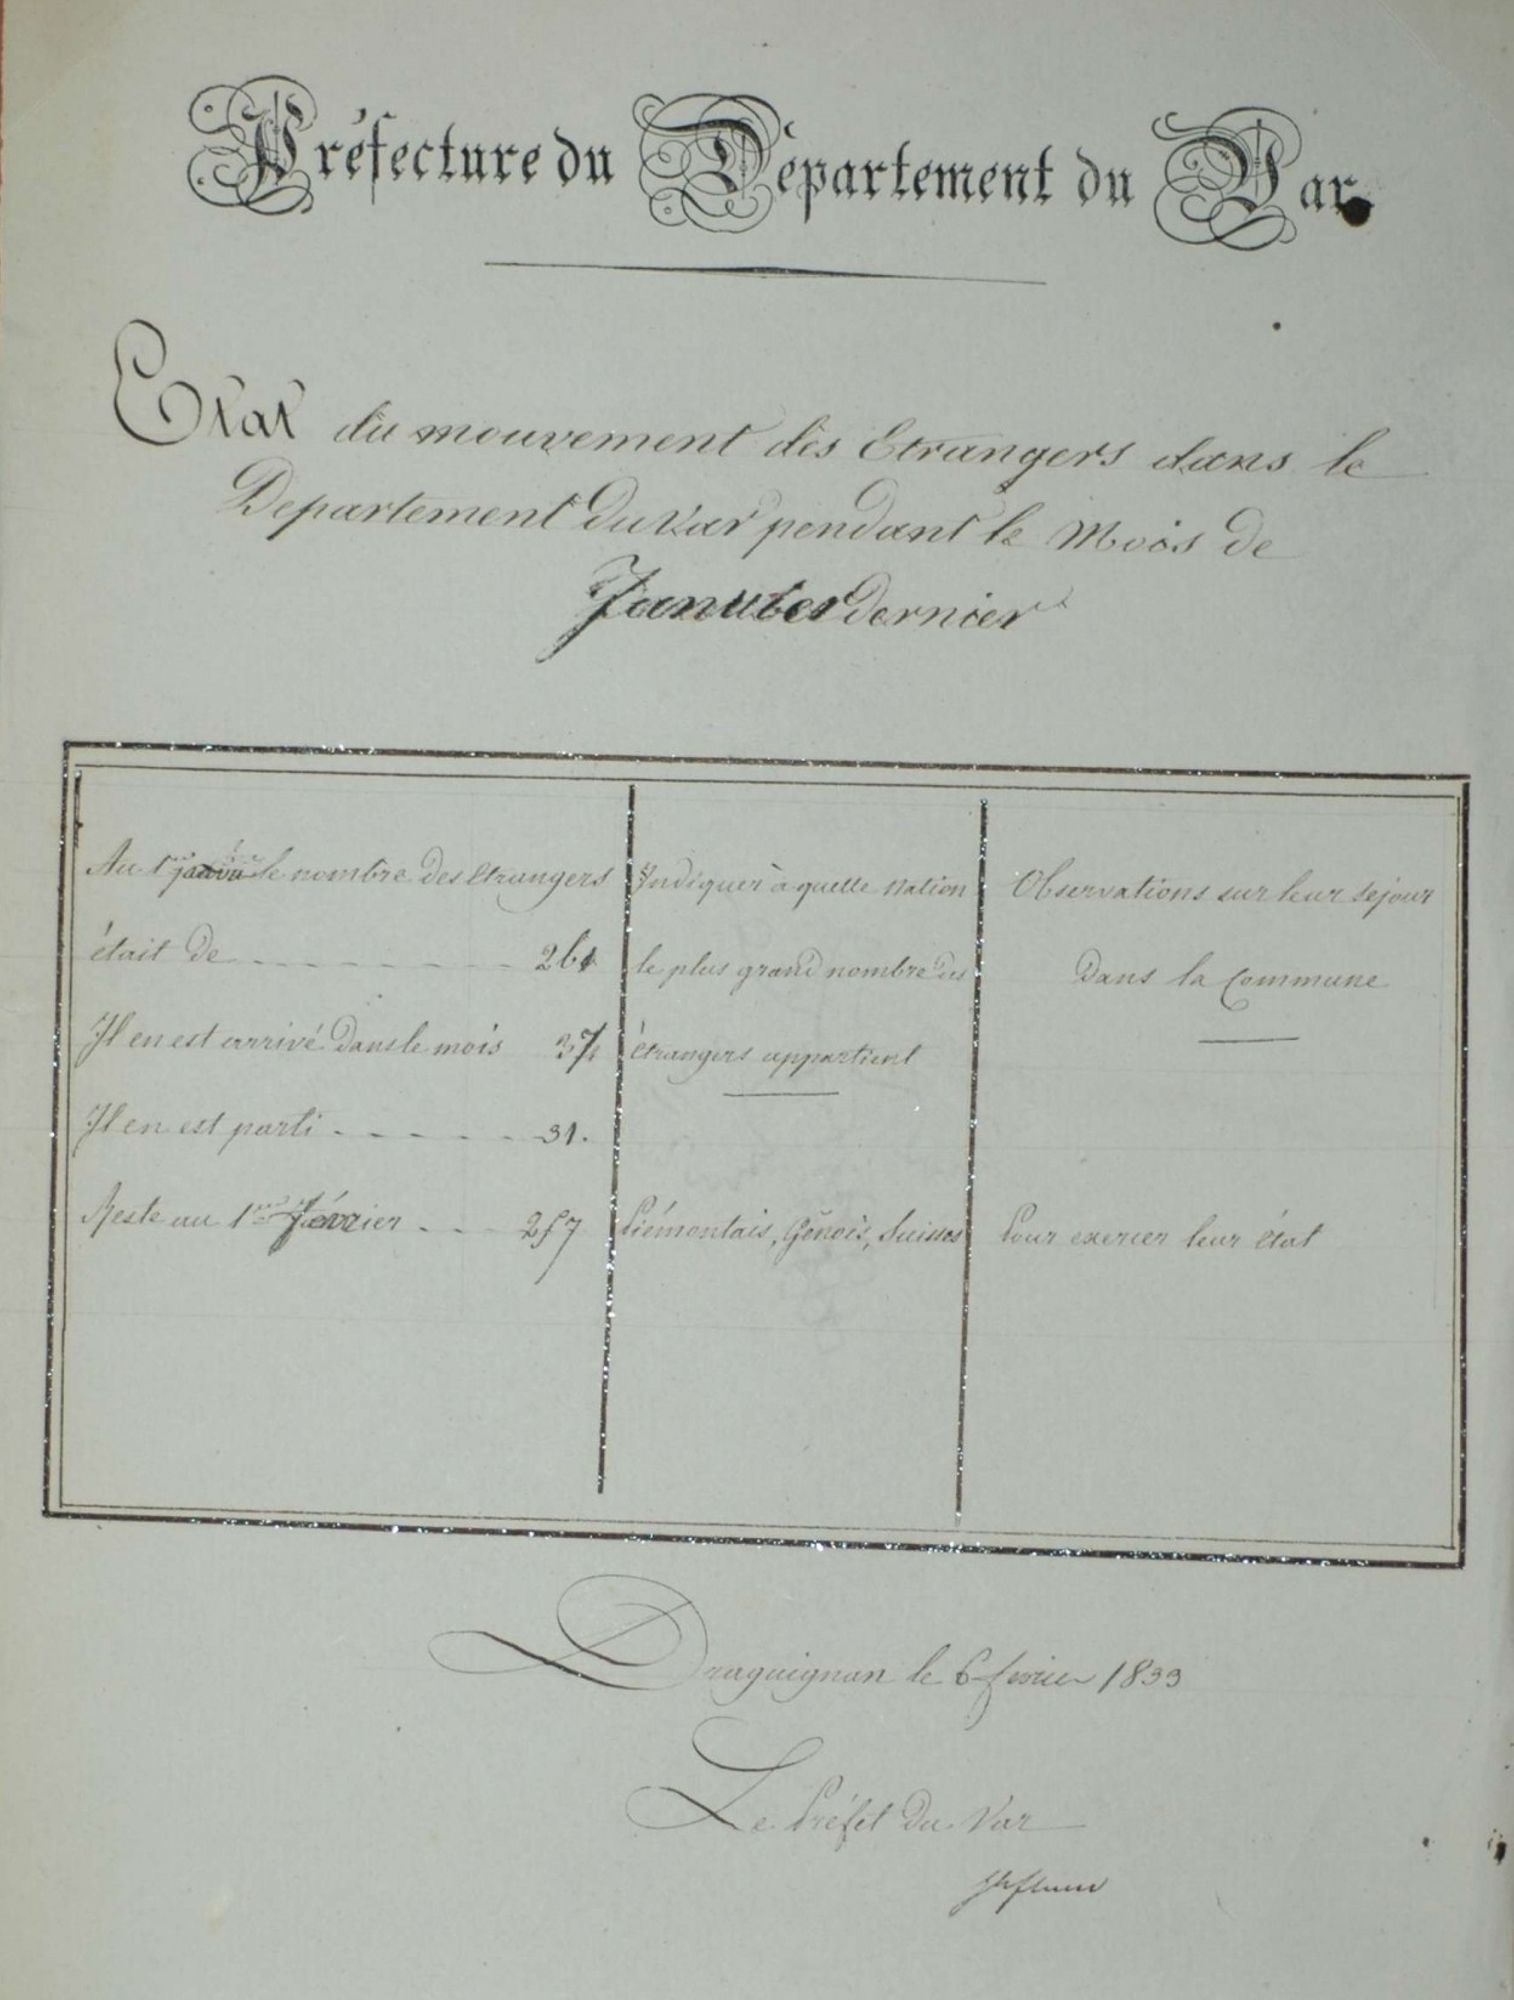 Préfecture du Département du Var
Etat du mouvement des Etrangers dans le
Departement du Var pendant le Mois de
Janvier dernier
Au 1er janvier le nombre des Etrangers
était de 261
Il en est arrivé dans le mois 37
Il en est parti 31.
Reste au 1er février 257
Indiquer à quelle Nation
le plus grand nombre des
étrangers appartient
Piémontais, Génois, Suisses
Observations sur leur séjour
dans la Commune
Pour exercer leur état
Draguignan le 6 fevrier 1833
Le Préfet du Var